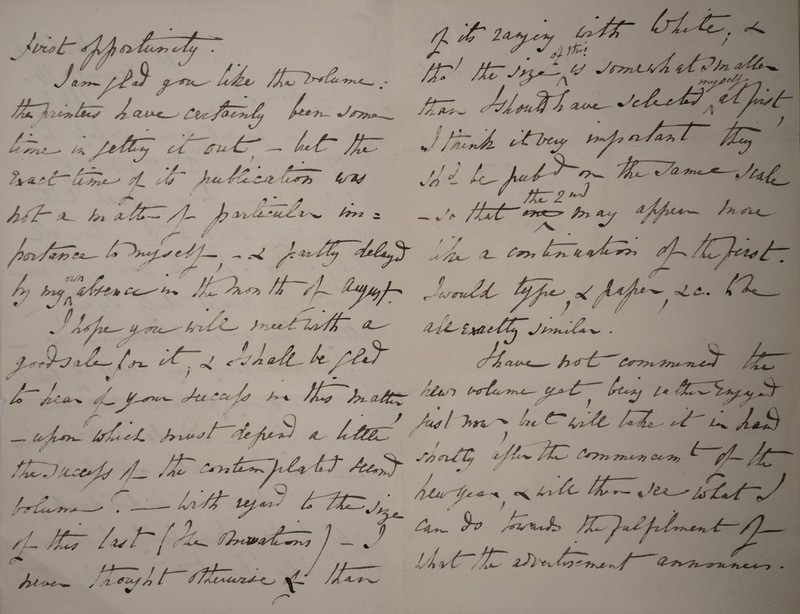 first opportunity.
I am glad you like the volume:
the printers have certainly been some
time in getting it out, – but the
exact time of its publication was
not a matter of particular im=
portance to myself, – & partly delayd
by my own absence in the month of August.
I hope you will meet with a
good sale for it, & I shall be glad
to hear of your success in this matter,
– upon which must depend a little
the success of the contemplated second
volume. — With regard to the size
of this last (The Observations) – I
never thought otherwise than
of its ranging with White, &
tho' the size of this is somewhat smaller
than I should have selected myself at first,
I think it very important they
shd. be pubd. on the same scale
– so that the 2nd may appear more
like a continuation of the first.
I would type, & paper, &c. be
all exactly similar.
I have not commenced the
new volume yet, being rather engaged
just now, but will take it in hand
shortly after the commencemt. of the
new year, & will then see what I
can do towards the fulfilment of
what the advertisement announces.